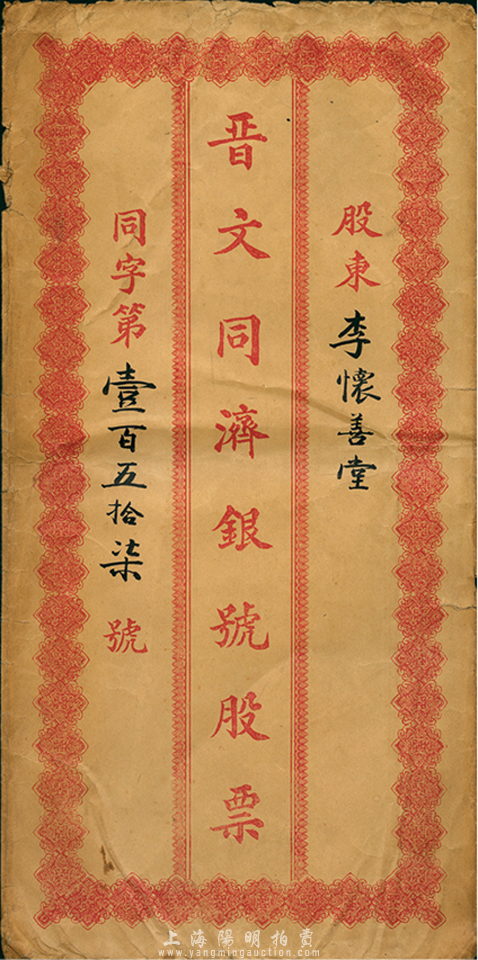 股東李懷善堂
晋文同濟銀號股票
同字第壹百五拾柒號
上海陽明拍賣
www.yangmingauction.com